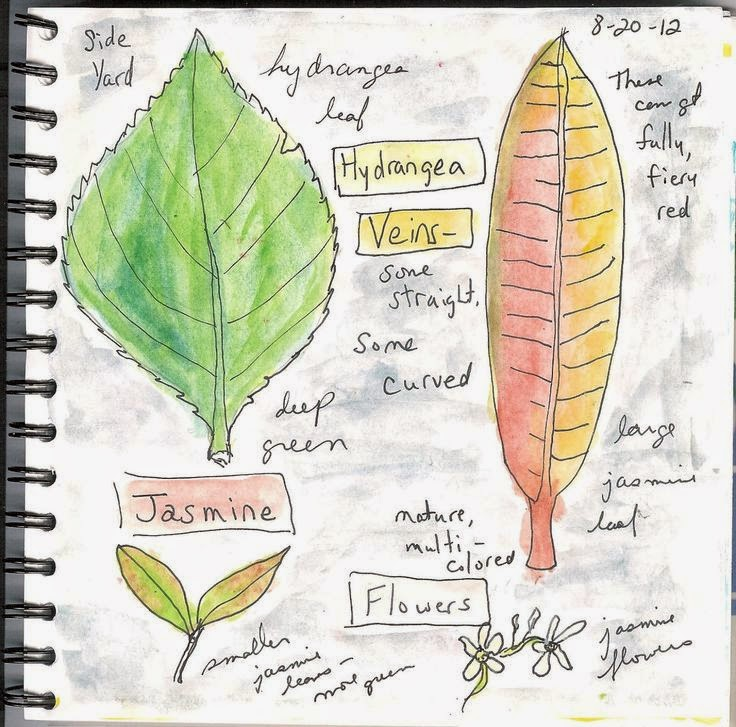 Side
Yard
hydrangea
leaf
8-20-12
These
can get
fully,
fiery
red
Hydrangea
Veins-
some
straight,
some
curved
deep
green
large
jasmine
leaf
Jasmine
mature,
multi-
colored
Flowers
smaller
jasmine
leaves-
more green
jasmine
flowers